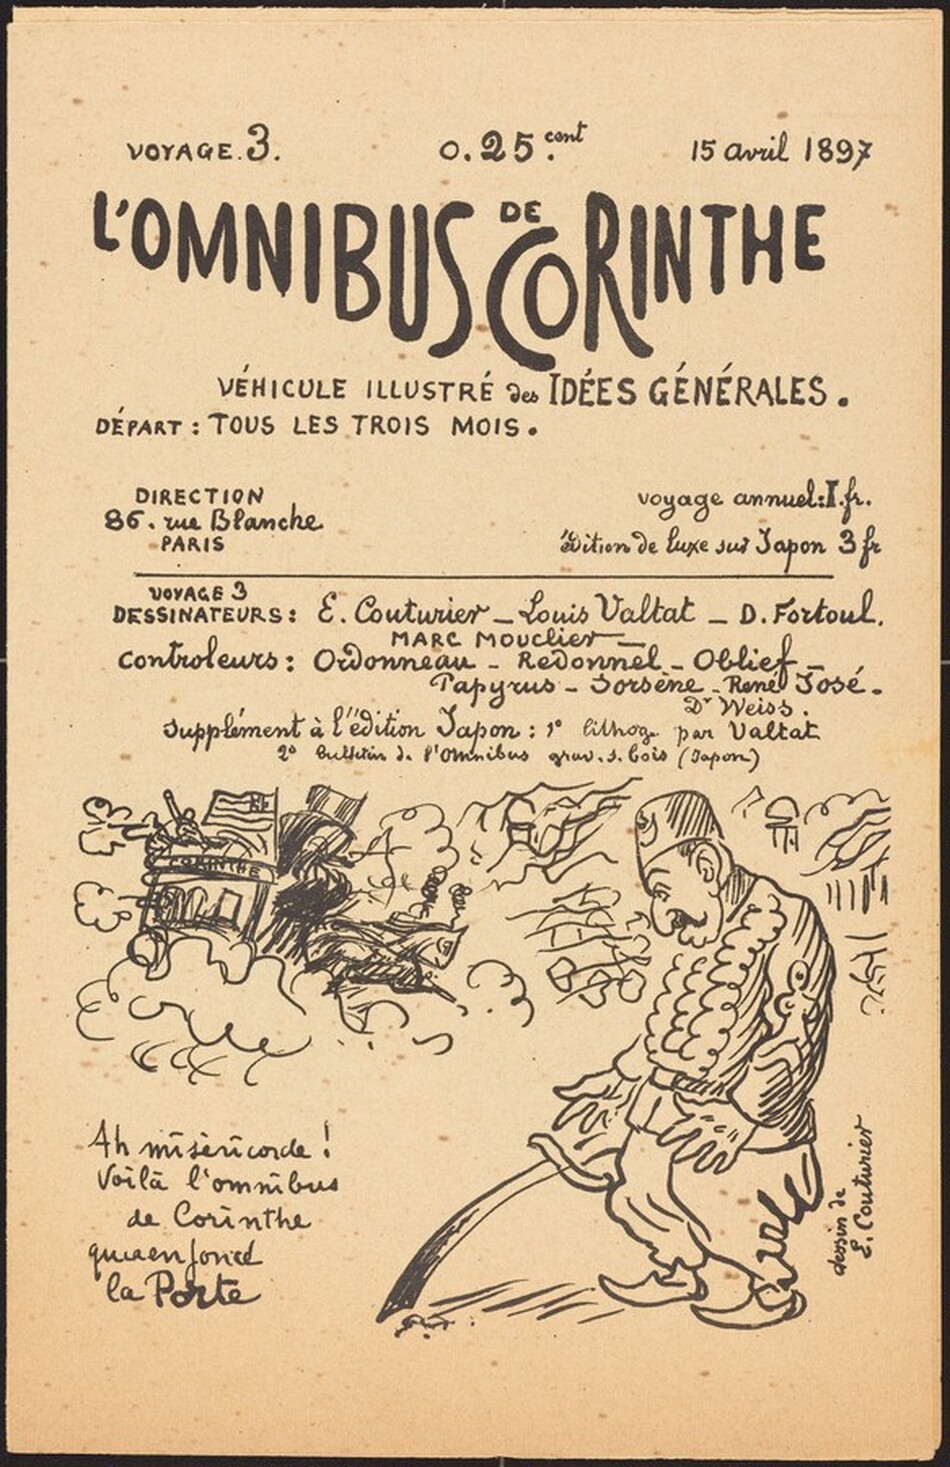 VOYAGE.3.
0.25.cent
15 avril 1897
L'OMNIBUS DE CORINTHE
VÉHICULE ILLUSTRÉ des IDÉES GÉNÉRALES.
DÉPART : TOUS LES TROIS MOIS.
DIRECTION
86. rue Blanche
PARIS
voyage annuel: I.fr.
Édition de luxe sur Japon 3 fr
VOYAGE 3
DESSINATEURS : E. Couturier _ Louis Valtat _ D. Fortoul.
MARC MOUCLIER _
Controleurs : Ordonneau - Redonnel - Oblief -
Papyrus - Sorsène - René José.
Dr Weiss.
Supplément à l'édition Japon : 1º lithog. par Valtat
2º bulletin de l'Omnibus grav. s. bois (Japon)
CORINTHE
Ah miséricorde !
Voilà l'omnibus
de Corinthe
la Porte
dessin de
E. Couturier